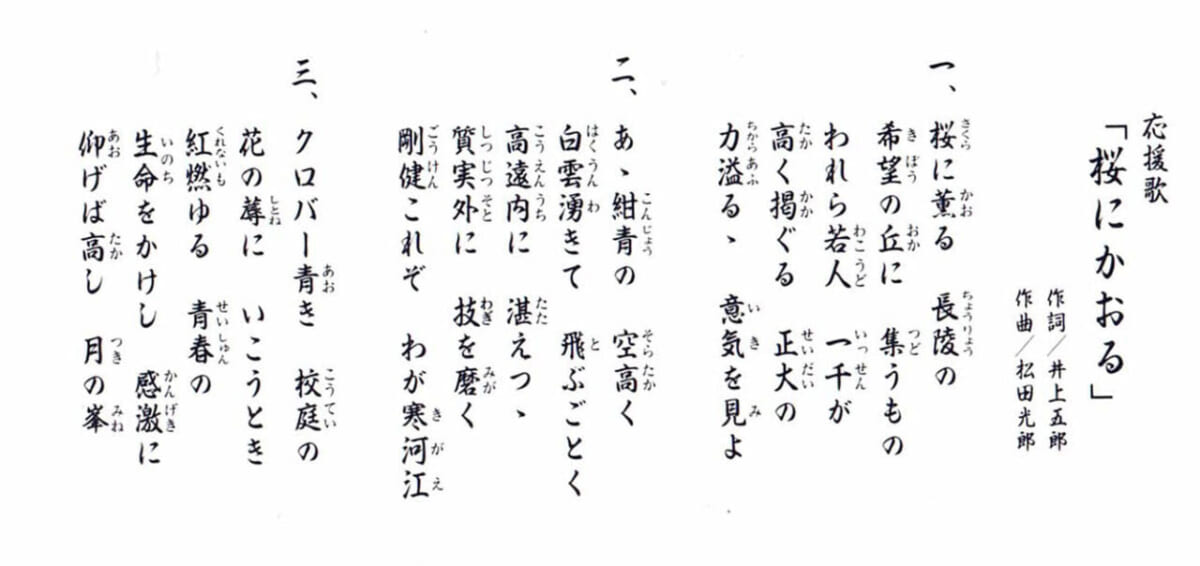 応援歌
「桜にかおる」
作詞／井上五郎
作曲／松田光郎
一、桜に薫る　長陵の
希望の丘に　集うもの
われら若人　一千が
高く掲ぐる　正大の
力溢るゝ　意気を見よ
二、あゝ紺青の　空高く
白雲湧きて　飛ぶごとく
高遠内に　湛えつゝ
質実外に　技を磨く
剛健これぞ　わが寒河江
三、クロバー青き　校庭の
花の蓐に　いこうとき
紅燃ゆる　青春の
生命をかけし　感激に
仰げば高し　月の峯